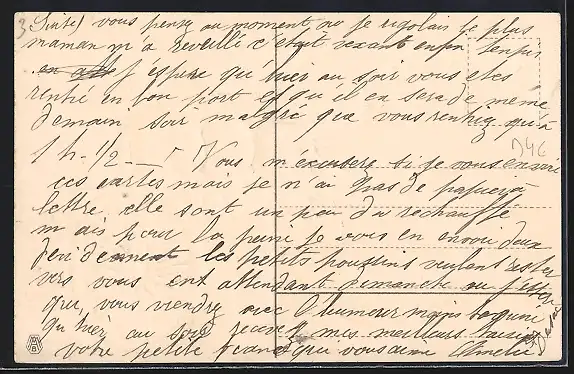 3 Suite) vous pensez au moment ou je rigolais le plus
maman m'a reveillé c'était vexant enfin tenpis
j'éspère qu'hier au soir vous etes
rentré en bon port et qu'il en sera de meme
demain soir malgré que vous rentriez qu'à
1 h - 1/2 — ! Vous m'éxcuserez si je vous envoie
ces cartes mais je n'ai pas de papier à
lettre, elle sont un peu du réchauffé
mais pour la peine je vous en envoi deux
decidement les petits poussins veulent rester
vers vous en attendant dimanche ou j'espère
que vous viendrez avec
qu'hier au soir recevez mes meilleurs baisers
votre petite qui vous aime Amelie
D46